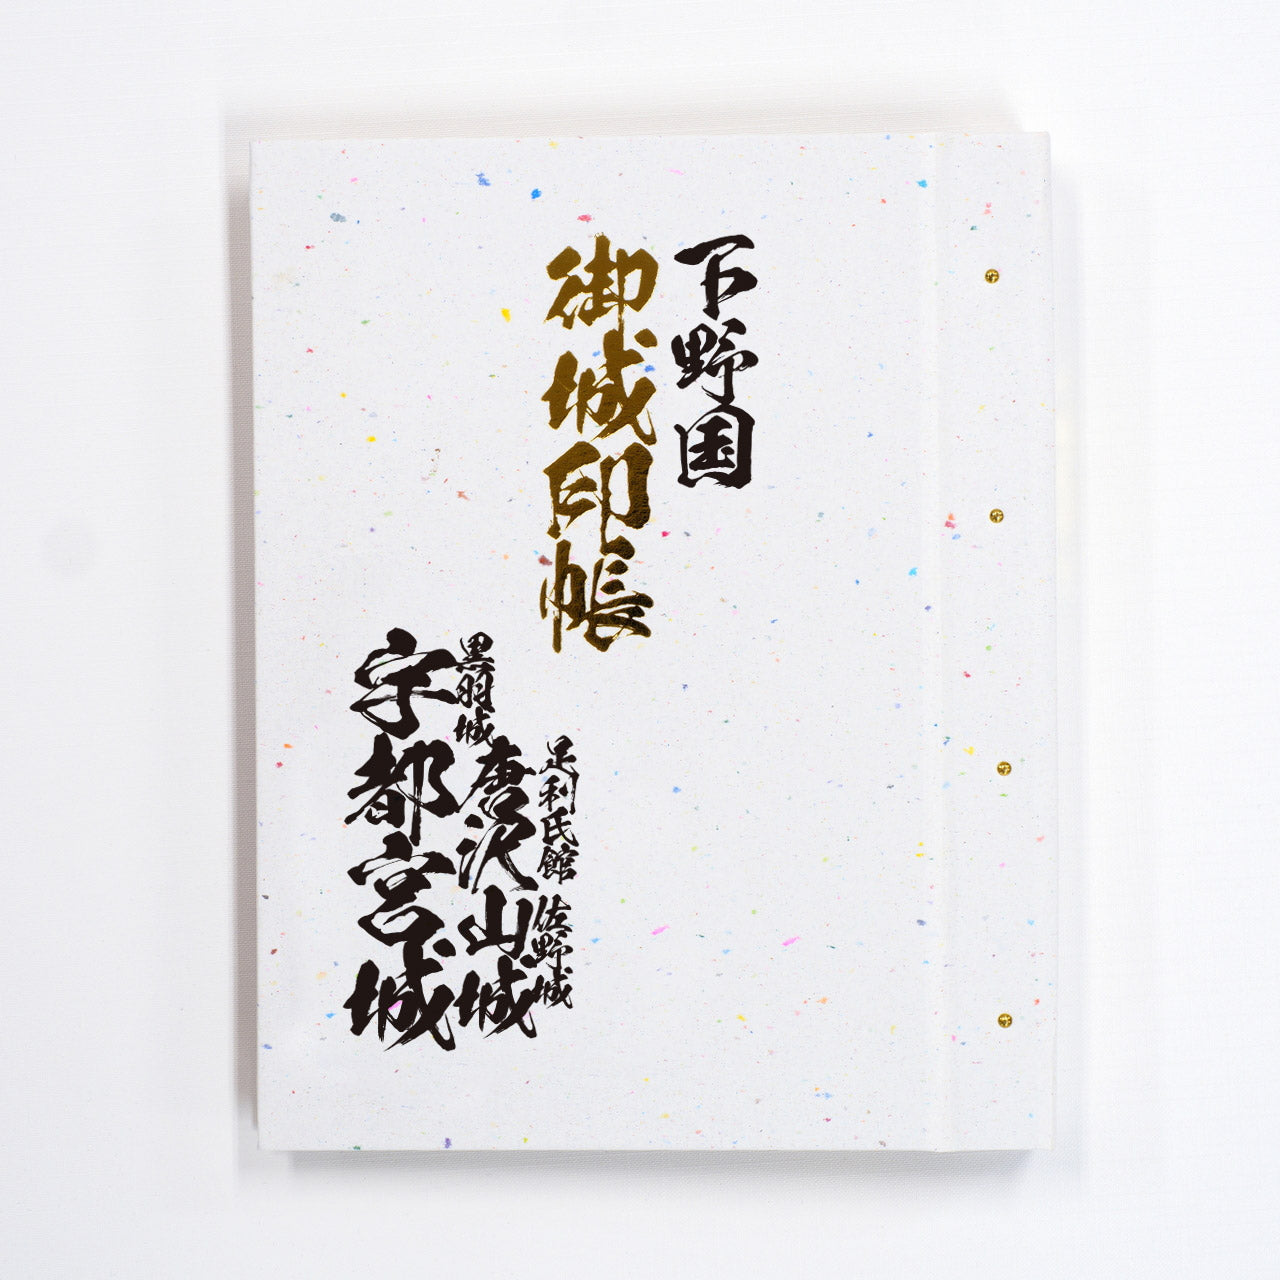 下野国
御城印帳
足利氏館
佐野城
黒羽城
唐沢山城
宇都宮城